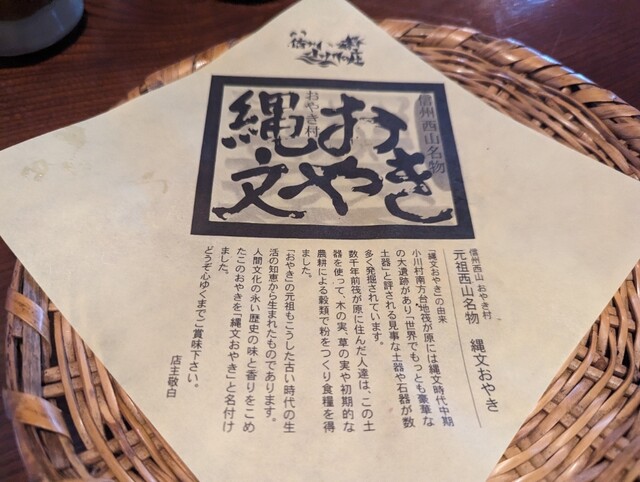 信州西山名物
おやき
おやき村
縄文
信州西山 おやき村
元祖西山名物 縄文おやき
「縄文おやき」の由来
小川村南方台地筏が原には縄文時代中期
の大遺跡があり「世界でもっとも豪華な
土器」と評される見事な土器や石器が数
多く発掘されています。
数千年前筏が原に住んだ人達は、この土
器を使って、木の実、草の実や初期的な
農耕による穀類で粉をつくり食糧を得
ました。
「おやき」の元祖もこうした古い時代の生
活の知恵から生まれたものであります。
人間文化の永い歴史の味と香りをこめ
たこのおやきを「縄文おやき」と名付け
ました。
どうぞ心ゆくまでご賞味下さい。
店主敬白